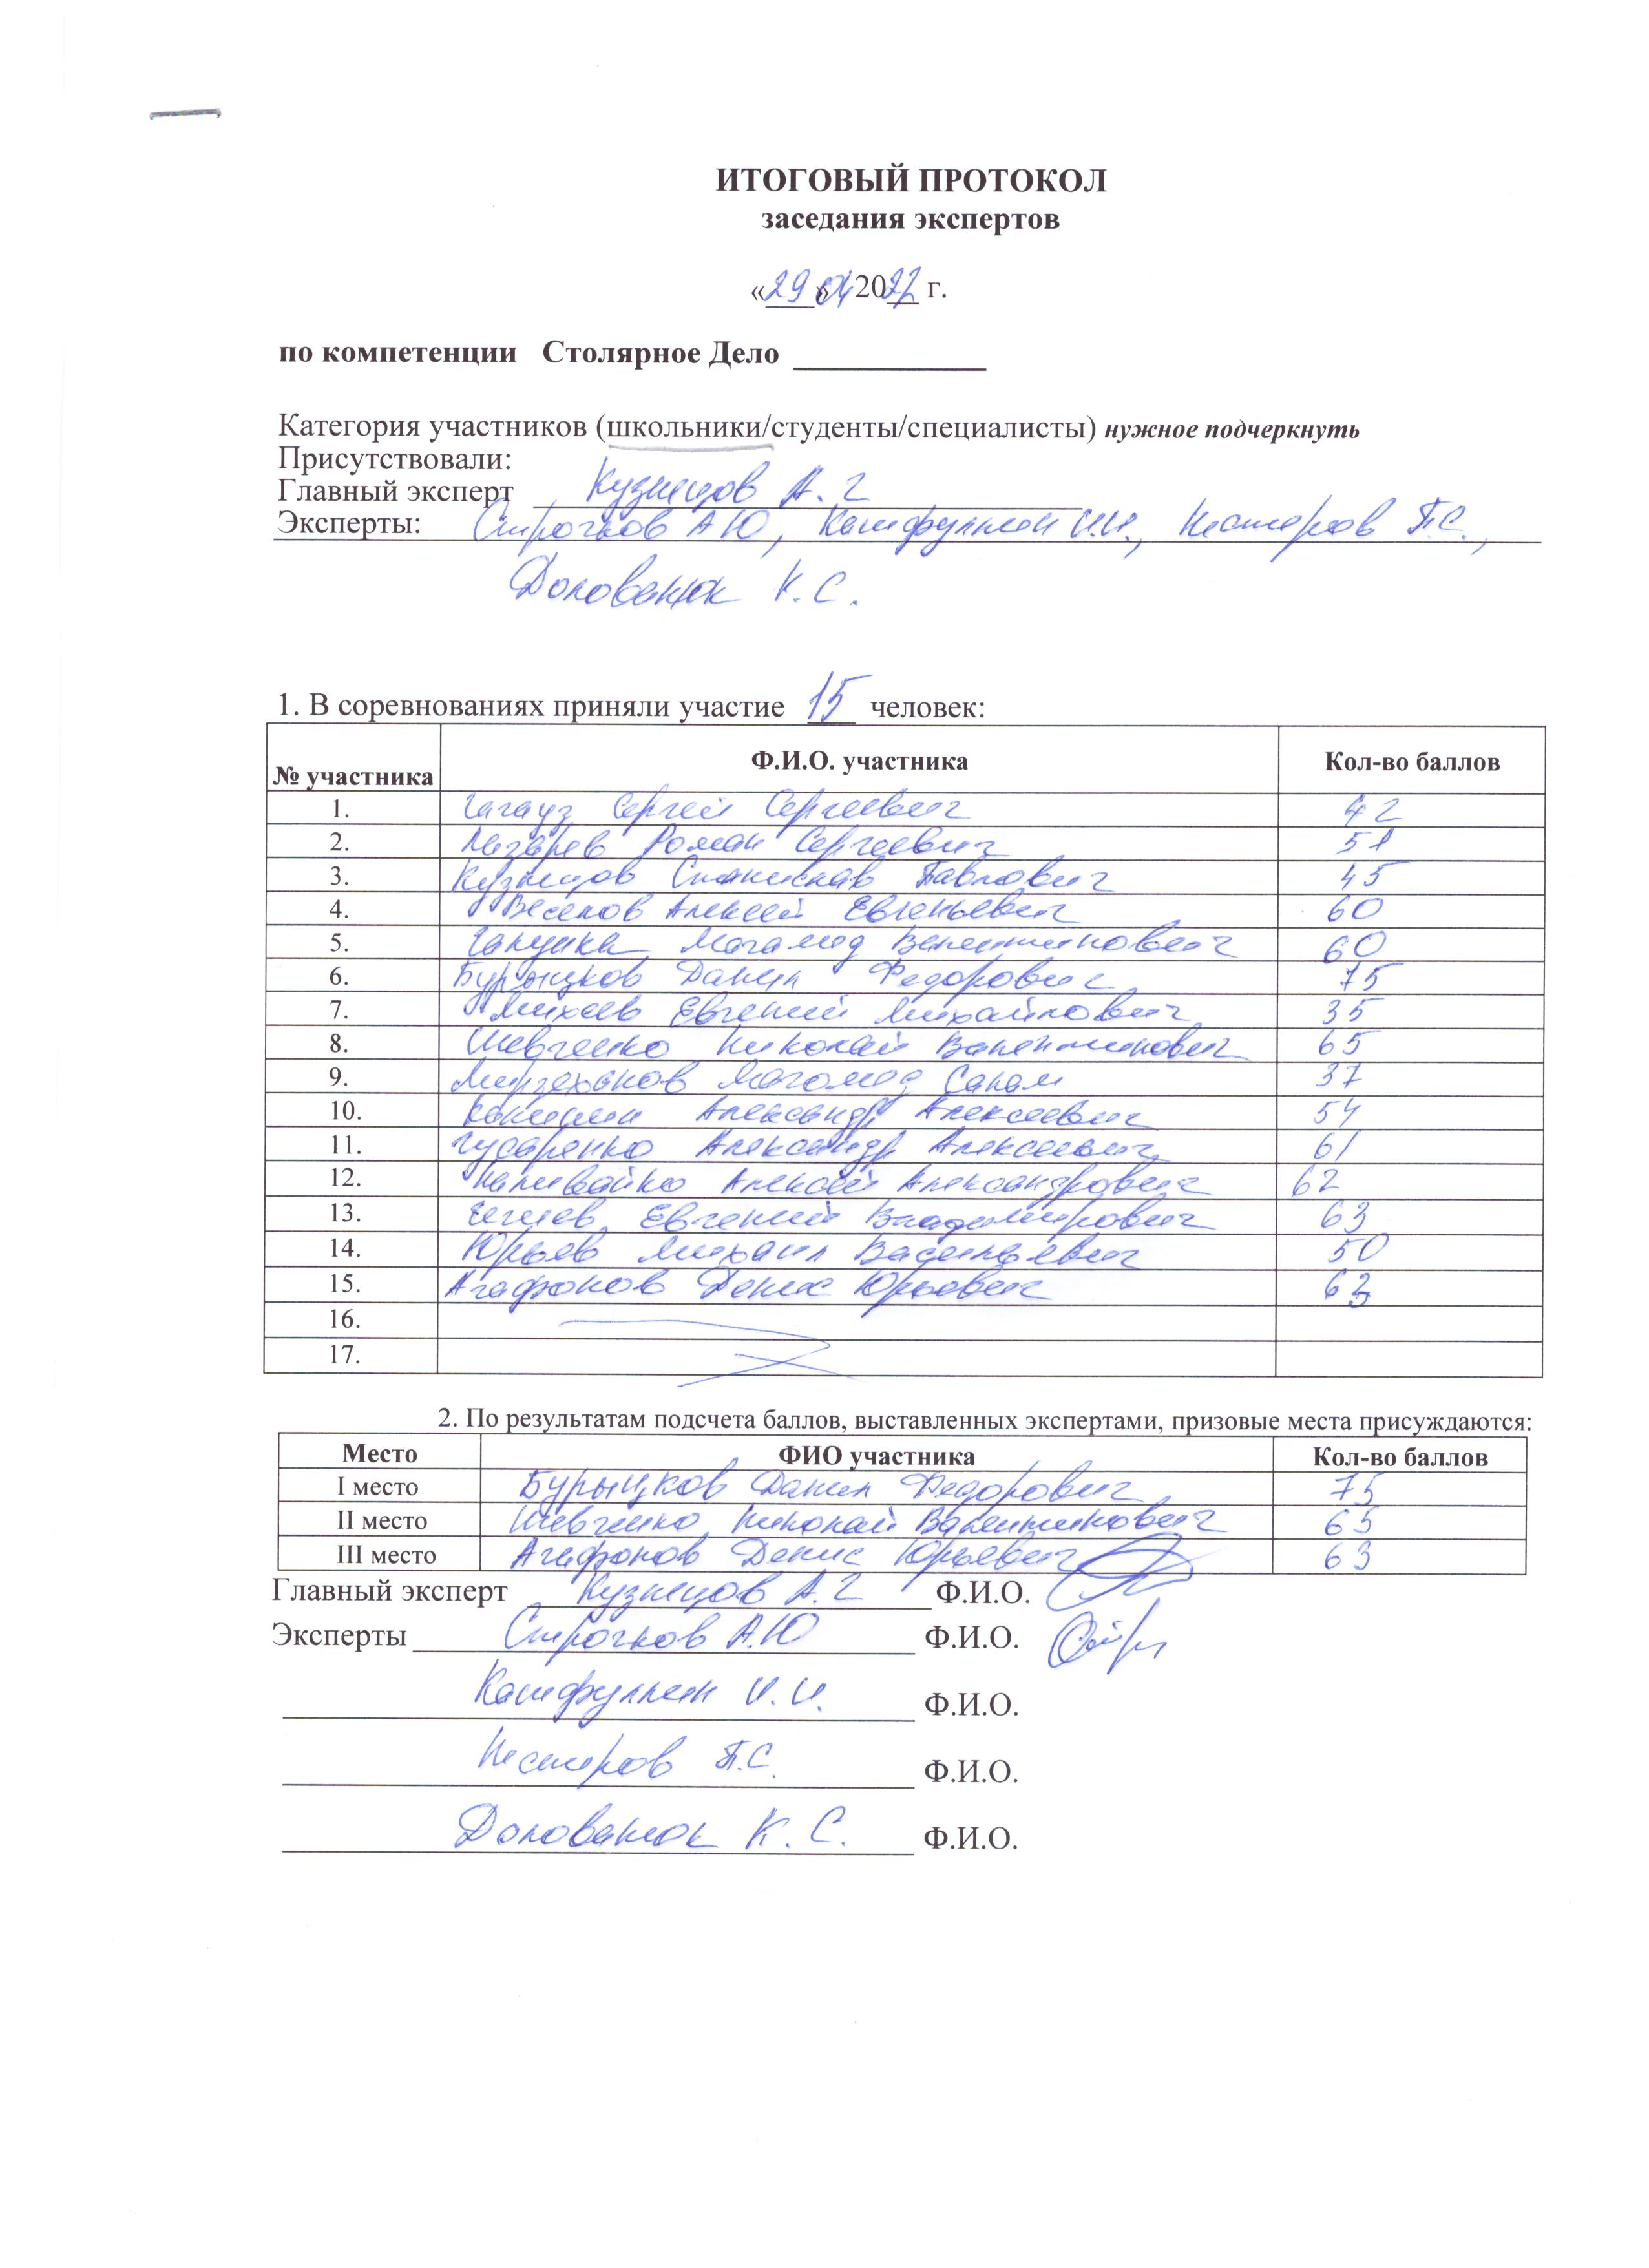 ИТОГОВЫЙ ПРОТОКОЛ
заседания экспертов
«29» 04 2022 г.
по компетенции Столярное Дело
Категория участников (школьники/студенты/специалисты) нужное подчеркнуть
Присутствовали:
Главный эксперт Кузнецов А. Г
Эксперты: Строчков А Ю, Кашфуллин И.И., Нестеров П.С.,
Долованюк К. С.
1. В соревнованиях приняли участие 15 человек:
№ участника Ф.И.О. участника Кол-во баллов
1. Гагауз Сергей Сергеевич 42
2. Лазарев Роман Сергеевич 51
3. Кузнецов Станислав Павлович 45
4. Веселов Алексей Евгеньевич 60
5. Магамед Валентинович 60
6. Бурыцков Данил Федорович 75
7. Михеев Евгений Михайлович 35
8. Шевченко Николай Валентинович 65
9. Мирзеханов Магомед Салам 37
10. Александр Алексеевич 54
11. Гусаренко Александр Алексеевич 61
12. Наливайко Алексей Александрович 62
13. Евгений Владимирович 63
14. Юрьев Михаил Васильевич 50
15. Агафонов Денис Юрьевич 63
16.
17.
2. По результатам подсчета баллов, выставленных экспертами, призовые места присуждаются:
Место ФИО участника Кол-во баллов
I место Бурыцков Данил Федорович 75
II место Шевченко Николай Валентинович 65
III место Агафонов Денис Юрьевич 63
Главный эксперт Кузнецов А. Г Ф.И.О.
Эксперты Строчков А.Ю Ф.И.О.
Кашфуллин И. И. Ф.И.О.
Нестеров П.С. Ф.И.О.
Долованюк К. С. Ф.И.О.